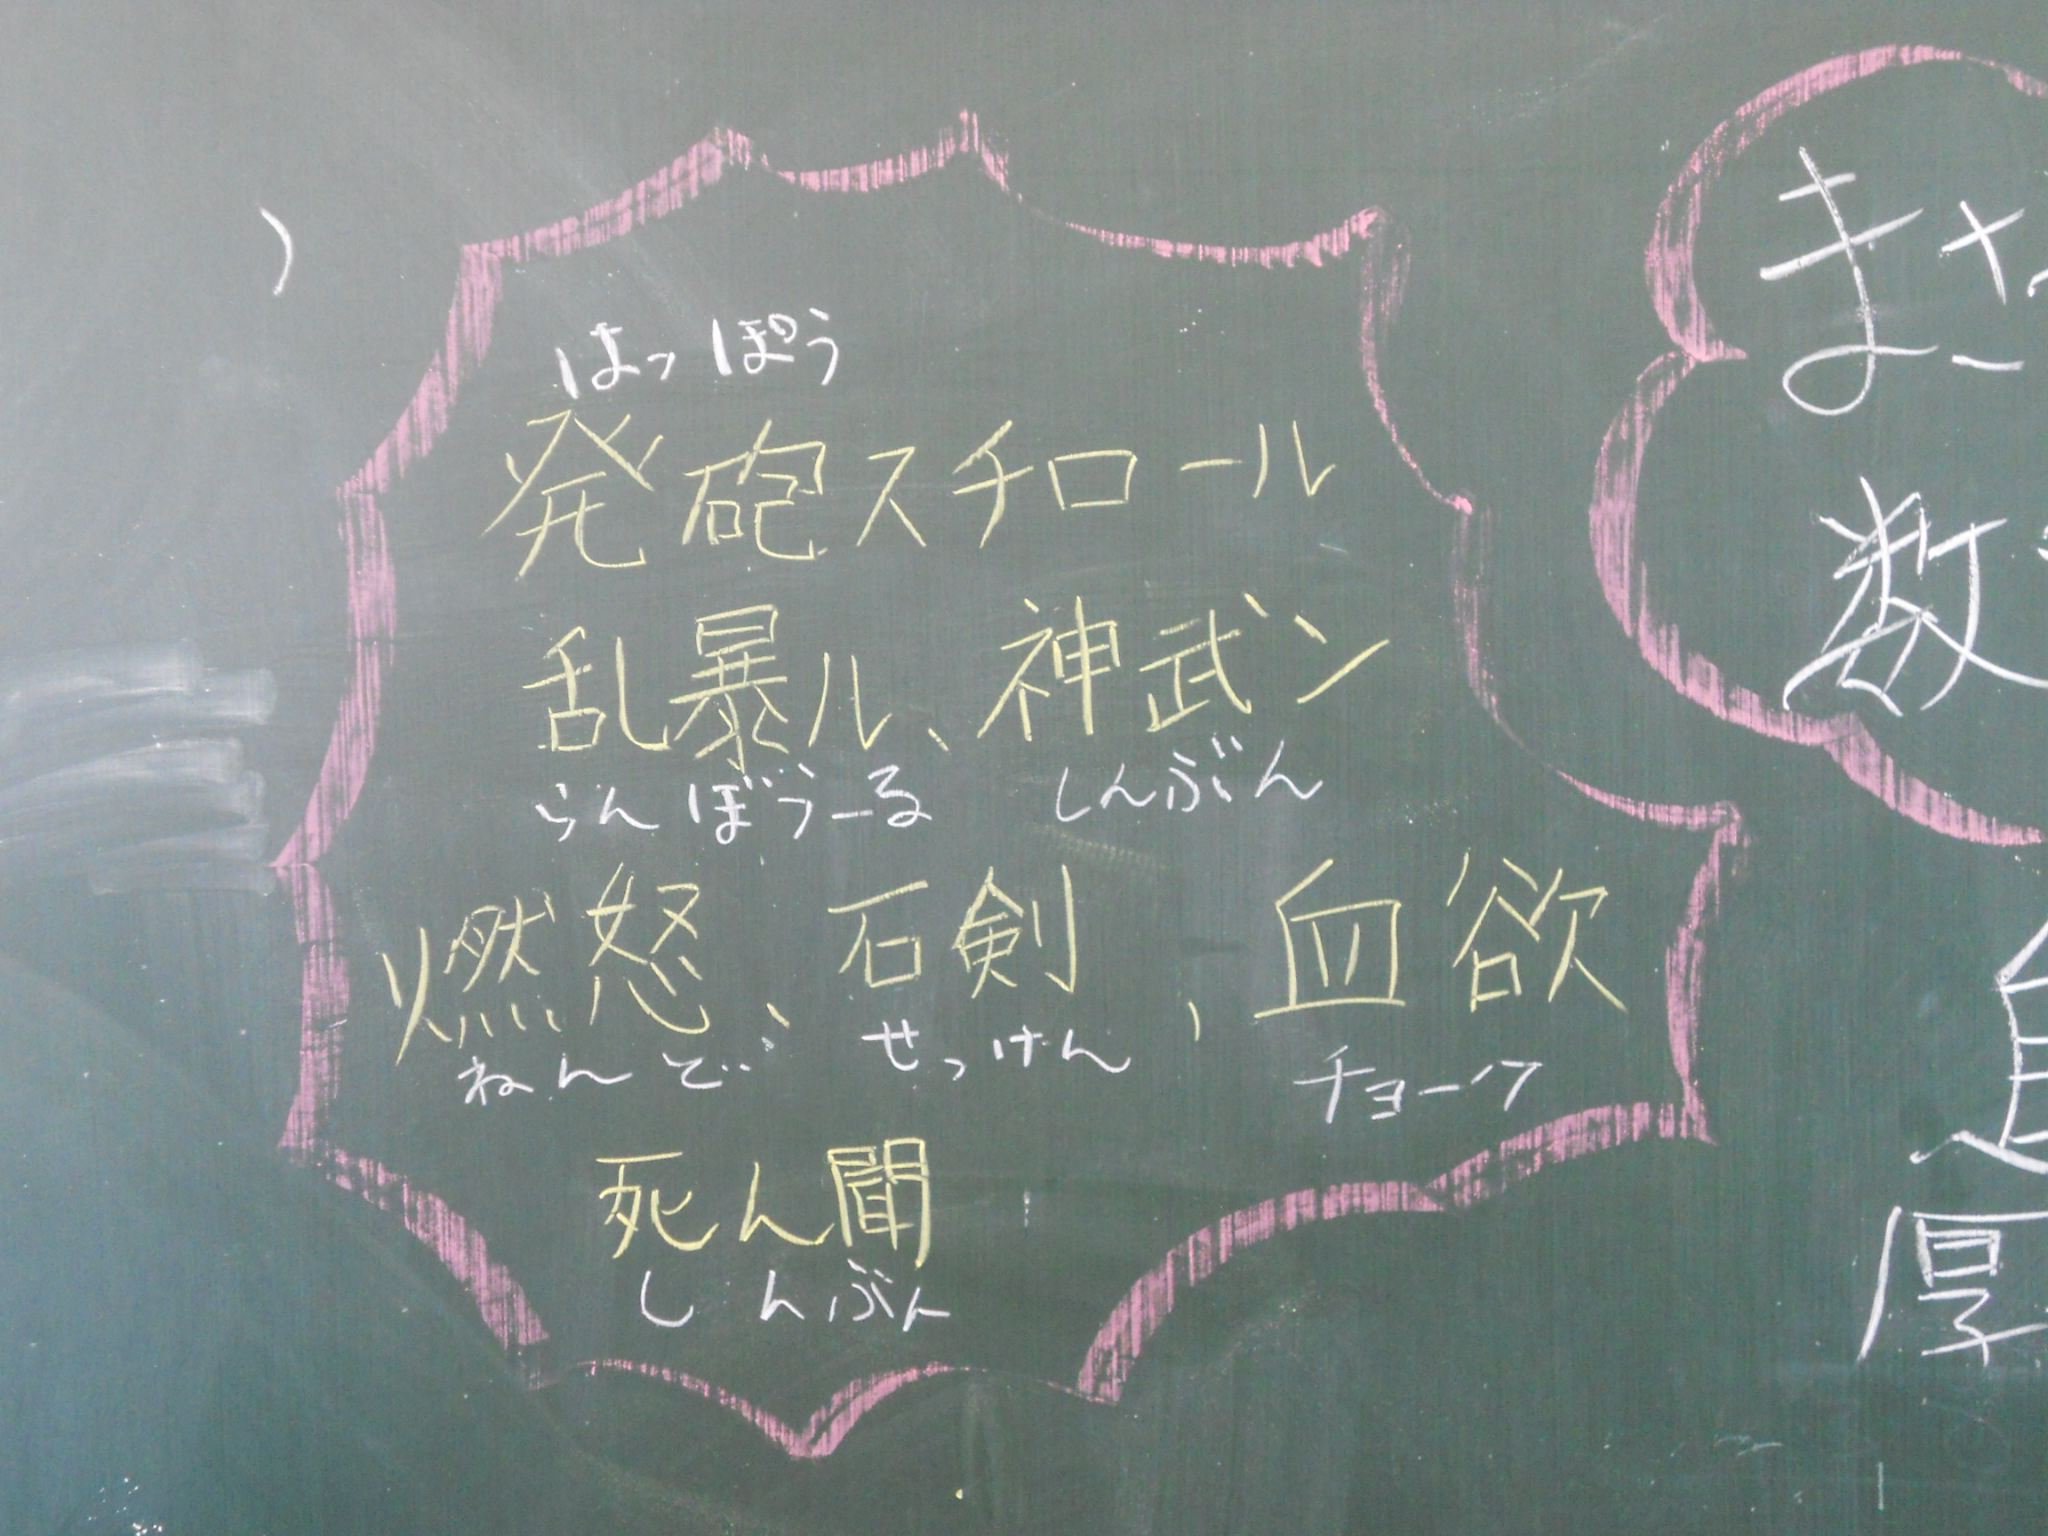 はっぽう
発砲スチロール
乱暴ル、神武ン
らんぼうーる しんぶん
燃怒、石剣、血欲
ねんど せっけん チョーク
死ん聞
しんぶん
まさ
数
厚